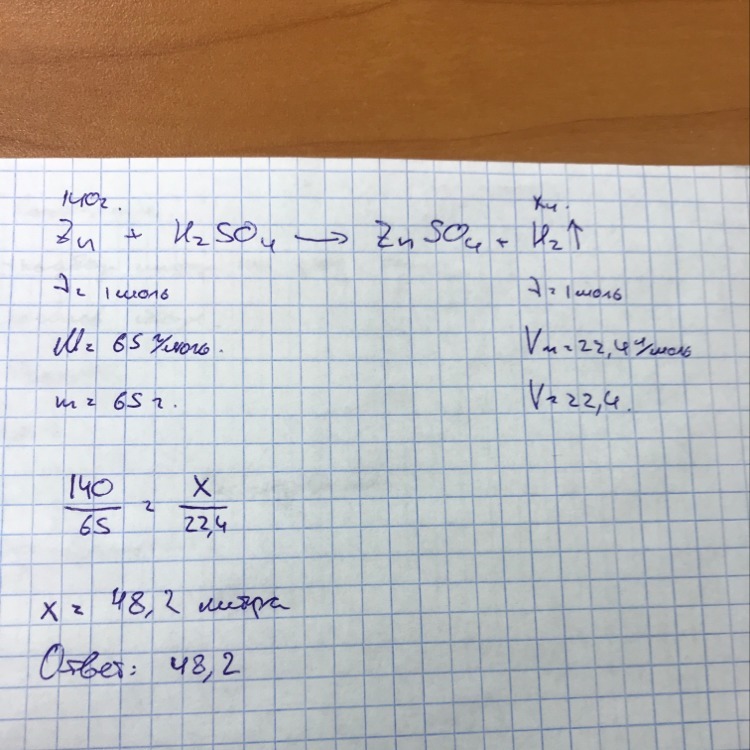 140г. Xл.
Zn + H₂SO₄ → ZnSO₄ + H₂↑
λ = 1 моль λ = 1 моль
M = 65 г/моль. Vм = 22,4 л/моль
m = 65 г. V = 22,4.
140/65 = X/22,4
x = 48,2 литра
Ответ: 48,2